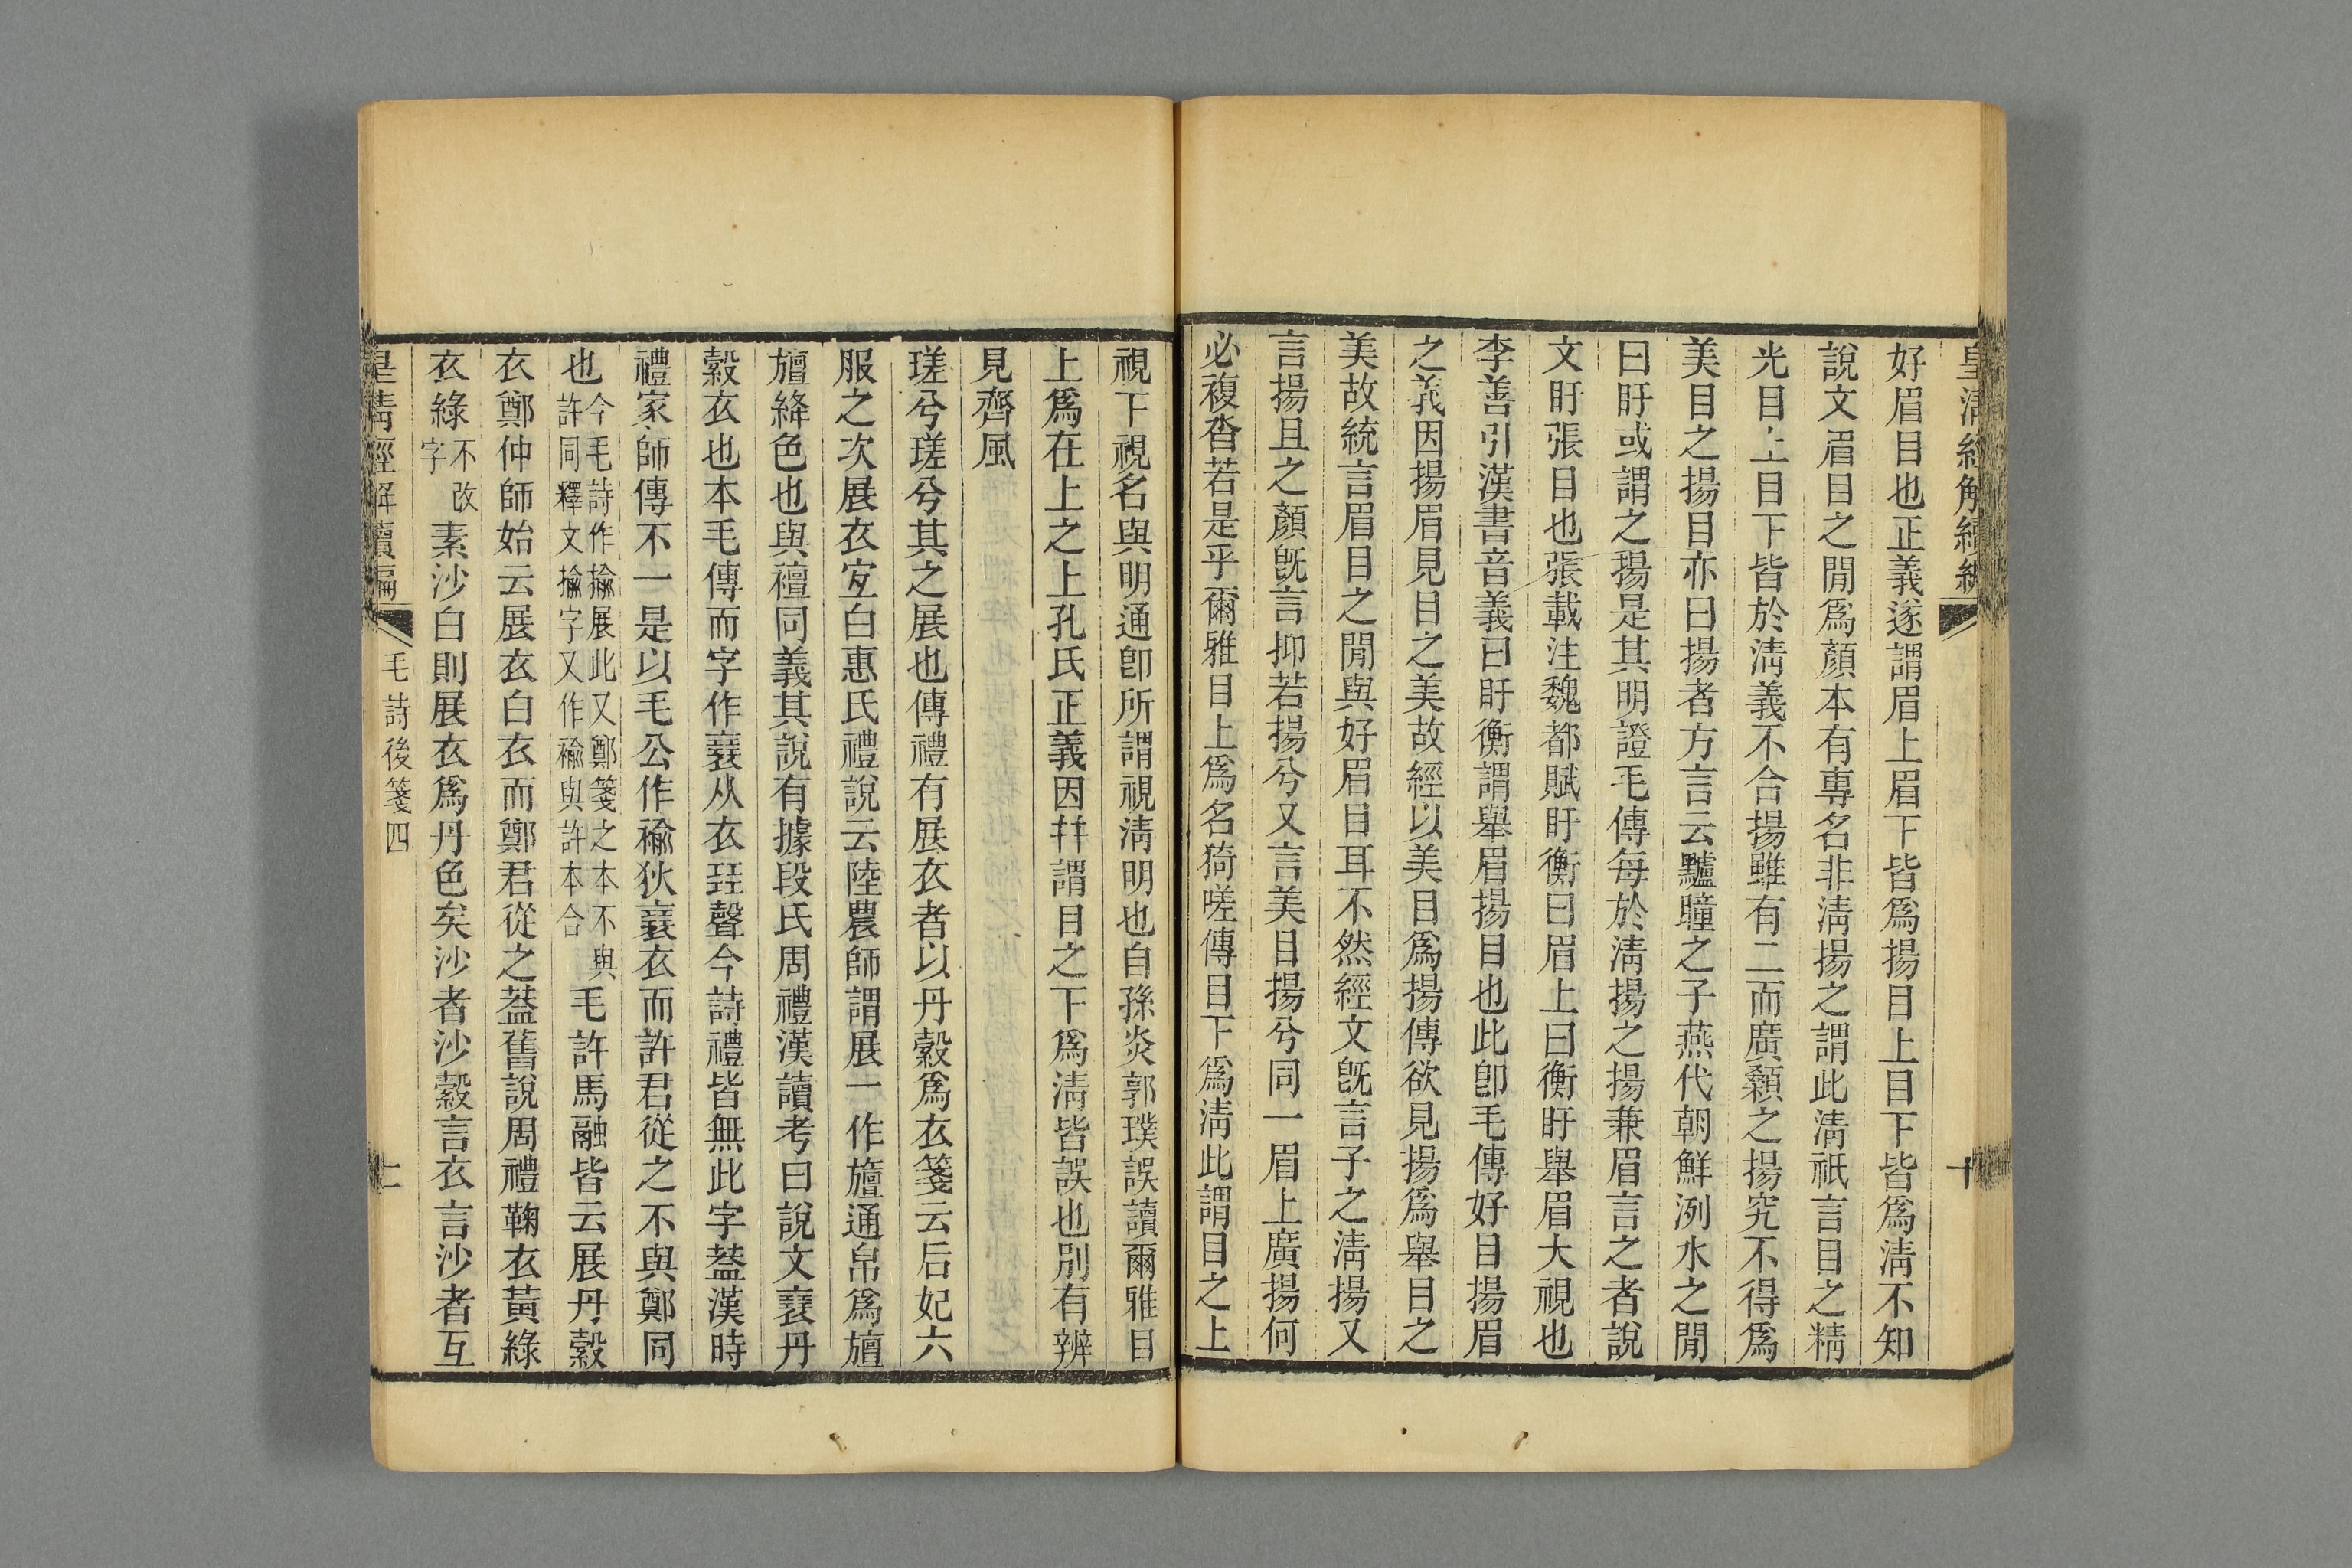 皇清經解續編
十
好眉目也正義遂謂眉上眉下皆爲揚目上目下皆爲淸不知
說文眉目之閒爲顏本有專名非淸揚之謂此淸祇言目之精
光目上目下皆於淸義不合揚雖有二而廣顙之揚究不得爲
美目之揚目亦曰揚者方言云驢瞳之子燕代朝鮮洌水之閒
曰盱或謂之揚是其明證毛傳每於淸揚之揚兼眉言之者說
文盱張目也張載注魏都賦盱衡曰眉上曰衡盱舉眉大視也
李善引漢書音義曰盱衡謂舉眉揚目也此卽毛傳好目揚眉
之義因揚眉見目之美故經以美目爲揚傳欲見揚爲舉目之
美故統言眉目之閒與好眉目耳不然經文旣言子之淸揚又
言揚且之顏旣言抑若揚兮又言美目揚兮同一眉上廣揚何
必複沓若是乎爾雅目上爲名猗嗟傳目下爲淸此謂目之上
視下視名與明通卽所謂視淸明也自孫炎郭璞誤讀爾雅目
上爲在上之上孔氏正義因幷謂目之下爲淸皆誤也別有辨
見齊風
瑳兮瑳兮其之展也傳禮有展衣者以丹縠爲衣箋云后妃六
服之次展衣宐白惠氏禮說云陸農師謂展一作旜通帛爲旜
旜絳色也與襢同義其說有據段氏周禮漢讀考曰說文襢丹
縠衣也本毛傳而字作襢从衣㠭聲今詩禮皆無此字葢漢時
禮家師傳不一是以毛公作褕狄襢衣而許君從之不與鄭同
也今毛詩作揄展此又鄭箋之本不與許同釋文揄字又作褕與許本合毛許馬融皆云展丹縠
衣鄭仲師始云展衣白衣而鄭君從之葢舊說周禮鞠衣黃綠
衣綠不改字素沙白則展衣爲丹色矣沙者沙縠言衣言沙者互
皇淸經解續編
毛詩後箋四